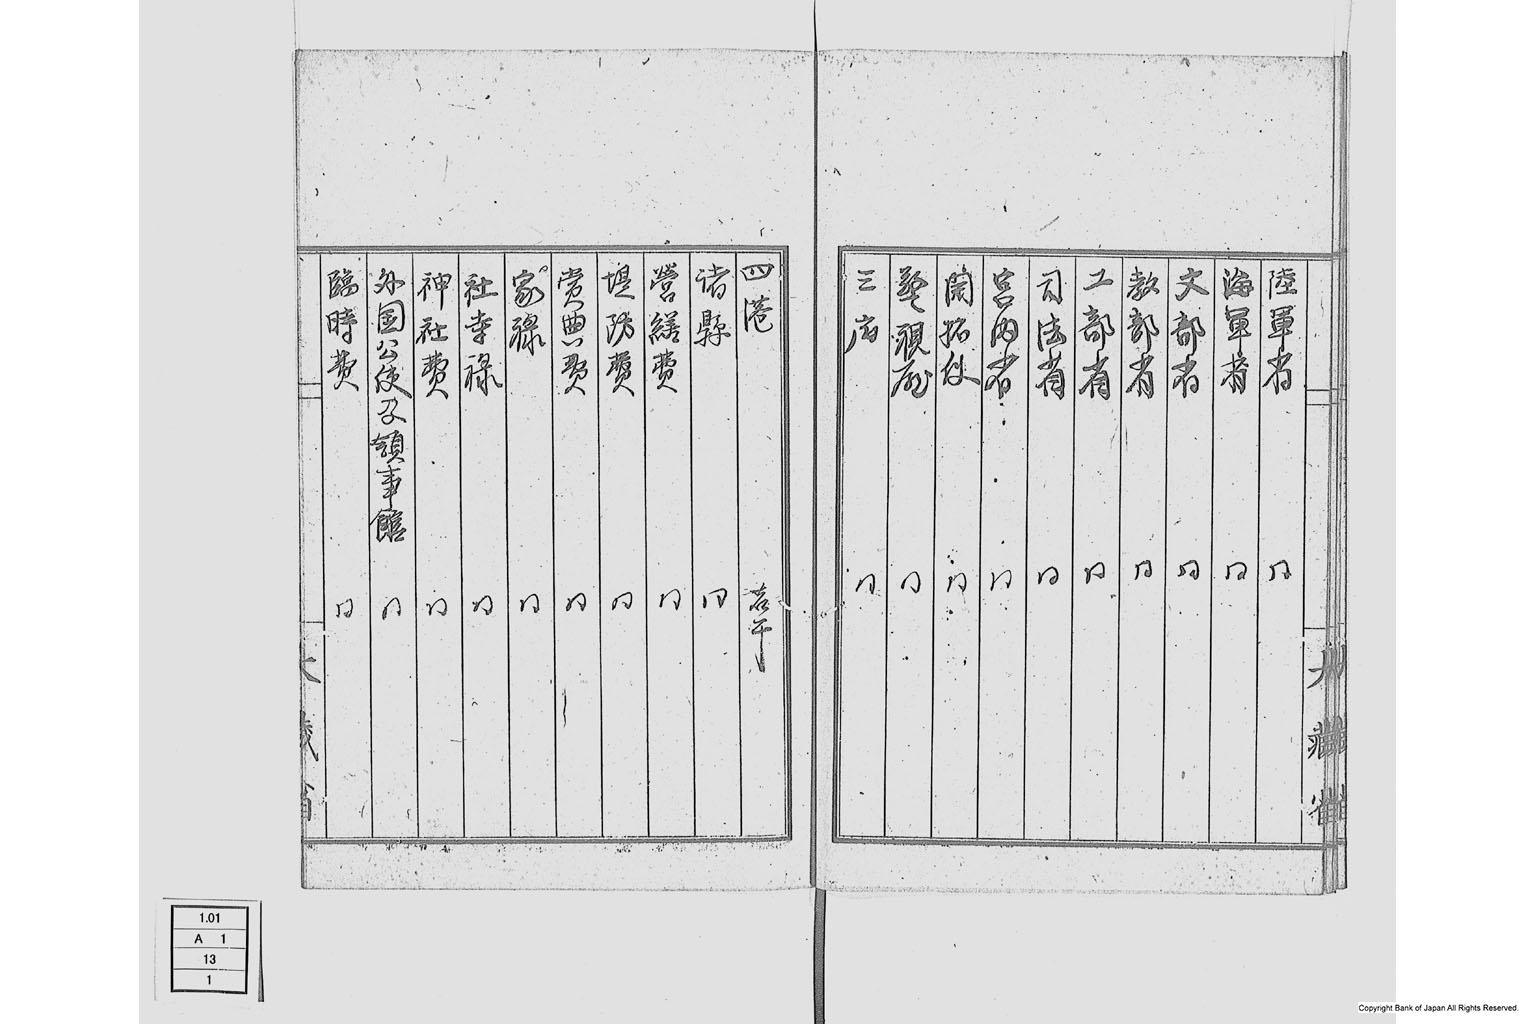 陸軍省 同
海軍省 同
文部省 同
教部省 同
工部省 同
司法省 同
宮内省 同
開拓使 同
警視廳 同
三府 同
大藏省
四港 若干
諸縣 同
營繕費 同
堤防費 同
賞典費 同
家禄 同
社寺禄 同
神社費 同
外国公使及領事館 同
臨時費 同
大藏省
1.01
A 1
13
1
Copyright Bank of Japan All Rights Reserved.